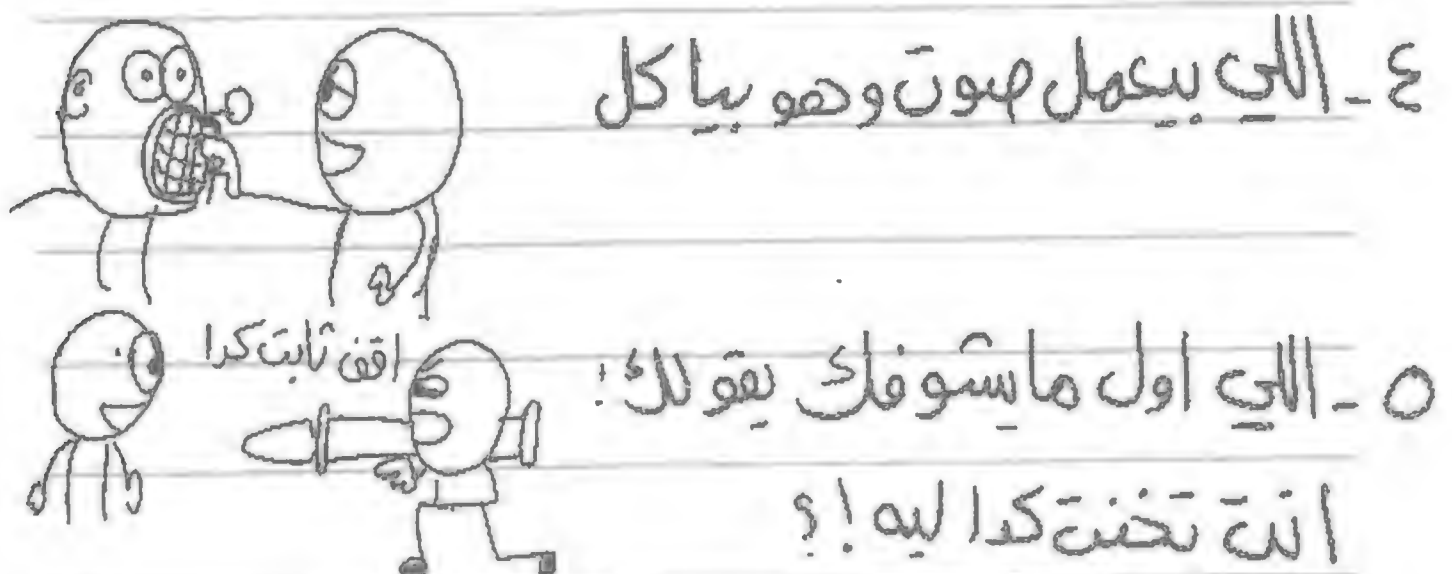 ٤ - اللي بيعمل صوت وهو بياكل
اقف ثابت كدا
٥ - اللي اول مايشوفك يقولك:
انت تخنت كدا ليه!؟